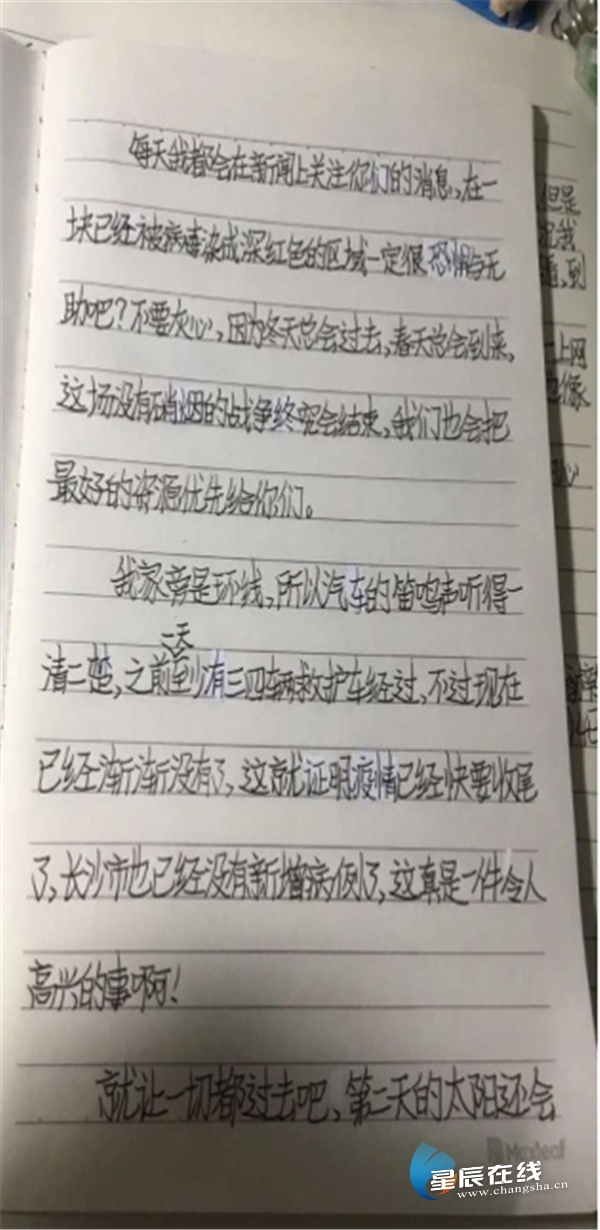 每天我都会在新闻上关注你们的消息,在一
块已经被病毒染成深红色的区域一定很恐惧与无
助吧?不要灰心,因为冬天总会过去,春天总会到来,
这场没有硝烟的战争终究会结束,我们也会把
最好的资源优先给你们。
我家旁是环线,所以汽车的笛鸣声听得一
一天
清二楚,之前至少有三四辆救护车经过,不过现在
已经渐渐没有了,这就证明疫情已经快要收尾
了,长沙市也已经没有新增病例了,这真是一件令人
高兴的事啊!
就让一切都过去吧、第二天的太阳还会
但是
到
上网
像
心
Maxleaf
星辰在线
www.changsha.cn